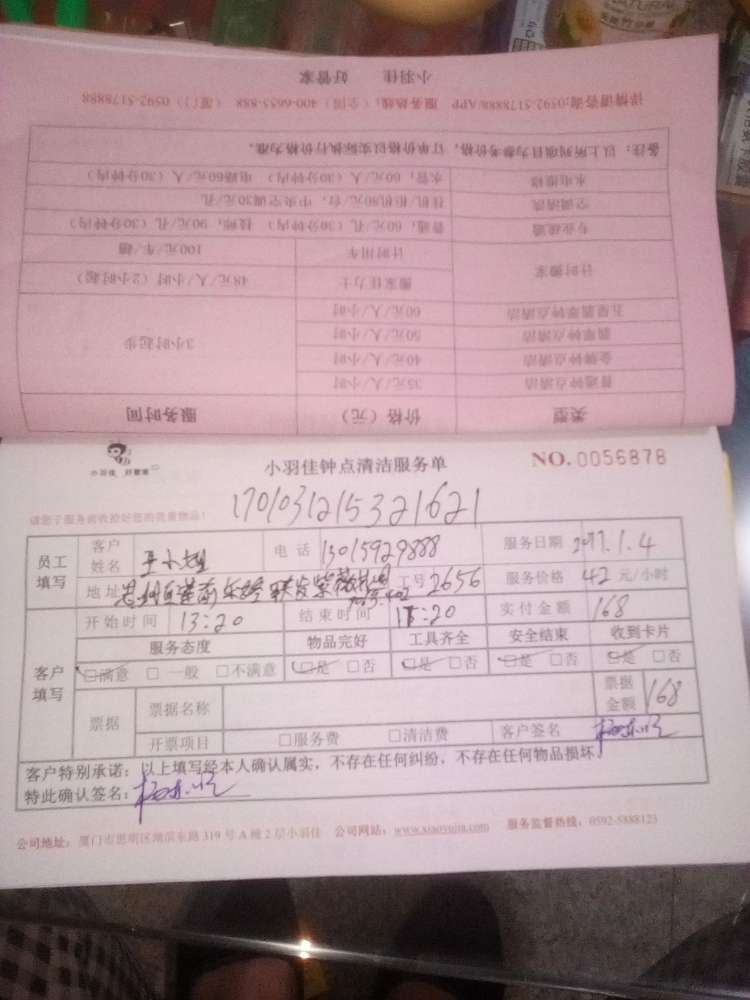 小羽佳 好管家
详情请咨询:0592-5178888/APP 服务热线:(全国)400-6655-888 (厦门)0592-5178888
备注:以上所列项目为参考价格,订单价格以实际执行价为准。
水电维修 水管,60元/人(30分钟内) 电路60元/人(30分钟内)
空调清洗 挂机 柜机80元/台,中央空调30元/孔
专业疏通 普通,60元/孔(30分钟内) 技师,90元/孔(30分钟内)
计时搬家 计时用车 100元/车/趟
搬家住力士 48元/人/小时(2小时起)
五星翡翠钟点清洁 60元/人/小时
翡翠钟点清洁 50元/人/小时
金牌钟点清洁 40元/人/小时
普通钟点清洁 35元/人/小时
3小时起步
类型 价格(元) 服务时间
小羽佳 好管家
小羽佳钟点清洁服务单
NO.0056878
请您于服务前收拾好您的贵重物品!
170103121532 1621
员工填写 客户姓名 电话 13015929888 服务日期 2017.1.4
地址 工号 2656 服务价格 42 元/小时
开始时间 13:20 结束时间 17:20 实付金额 168
客户填写 服务态度 物品完好 工具齐全 安全结束 收到卡片
□满意 □一般 □不满意 □是 □否 □是 □否 □是 □否 □是 □否
票据 票据名称 票据金额 168
开票项目 □服务费 □清洁费 客户签名
客户特别承诺:以上填写经本人确认属实,不存在任何纠纷,不存在任何物品损坏。
特此确认签名:
公司地址:厦门市思明区湖滨东路319号A幢2层小羽佳 公司网站:www.xiaoyujia.com 服务监督热线:0592-5888123